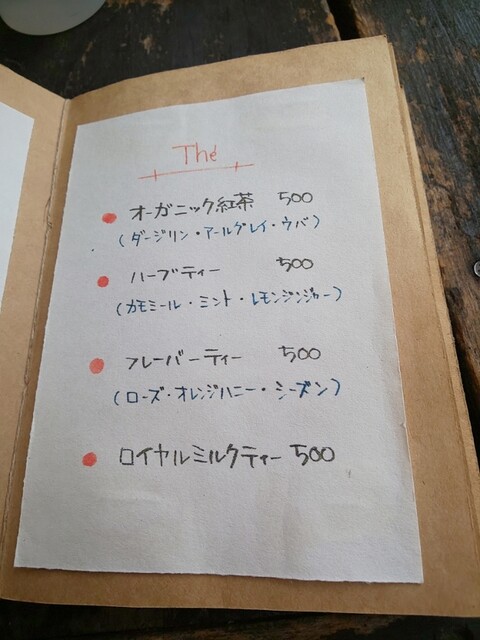 Thé
オーガニック紅茶 500
(ダージリン・アールグレイ・ウバ)
ハーブティー 500
(カモミール・ミント・レモンジンジャー)
フレーバーティー 500
(ローズ・オレンジハニー・シーズン)
ロイヤルミルクティー 500